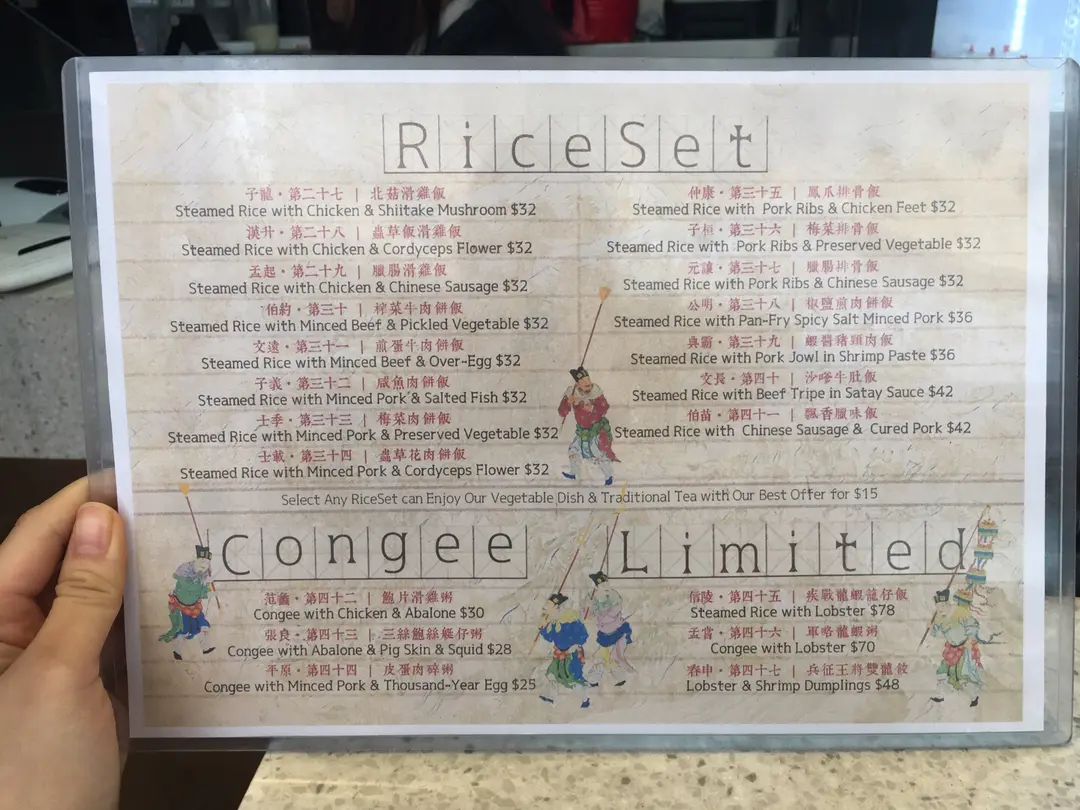 RiceSet
子龍・第二十七 | 北菇滑雞飯
Steamed Rice with Chicken & Shiitake Mushroom $32
漢升・第二十八 | 蟲草飯滑雞飯
Steamed Rice with Chicken & Cordyceps Flower $32
孟起・第二十九 | 臘腸滑雞飯
Steamed Rice with Chicken & Chinese Sausage $32
伯約・第三十 | 榨菜牛肉餅飯
Steamed Rice with Minced Beef & Pickled Vegetable $32
文遠・第三十一 | 煎蛋牛肉餅飯
Steamed Rice with Minced Beef & Over-Egg $32
子義・第三十二 | 咸魚肉餅飯
Steamed Rice with Minced Pork & Salted Fish $32
士季・第三十三 | 梅菜肉餅飯
Steamed Rice with Minced Pork & Preserved Vegetable $32
士載・第三十四 | 蟲草花肉餅飯
Steamed Rice with Minced Pork & Cordyceps Flower $32
仲康・第三十五 | 鳳爪排骨飯
Steamed Rice with Pork Ribs & Chicken Feet $32
子桓・第三十六 | 梅菜排骨飯
Steamed Rice with Pork Ribs & Preserved Vegetable $32
元讓・第三十七 | 臘腸排骨飯
Steamed Rice with Pork Ribs & Chinese Sausage $32
公明・第三十八 | 椒鹽煎肉餅飯
Steamed Rice with Pan-Fry Spicy Salt Minced Pork $36
典霸・第三十九 | 蝦醬豬頸肉飯
Steamed Rice with Pork Jowl in Shrimp Paste $36
文長・第四十 | 沙嗲牛肚飯
Steamed Rice with Beef Tripe in Satay Sauce $42
伯苗・第四十一 | 飄香臘味飯
Steamed Rice with Chinese Sausage & Cured Pork $42
Select Any RiceSet can Enjoy Our Vegetable Dish & Traditional Tea with Our Best Offer for $15
Congee
范蠡・第四十二 | 鮑片滑雞粥
Congee with Chicken & Abalone $30
張良・第四十三 | 三絲鮑絲艇仔粥
Congee with Abalone & Pig Skin & Squid $28
平原・第四十四 | 皮蛋肉碎粥
Congee with Minced Pork & Thousand-Year Egg $25
Limited
信陵・第四十五 | 疾戰龍蝦龍仔飯
Steamed Rice with Lobster $78
孟嘗・第四十六 | 軍略龍蝦粥
Congee with Lobster $70
春申・第四十七 | 兵征王將雙龍餃
Lobster & Shrimp Dumplings $48